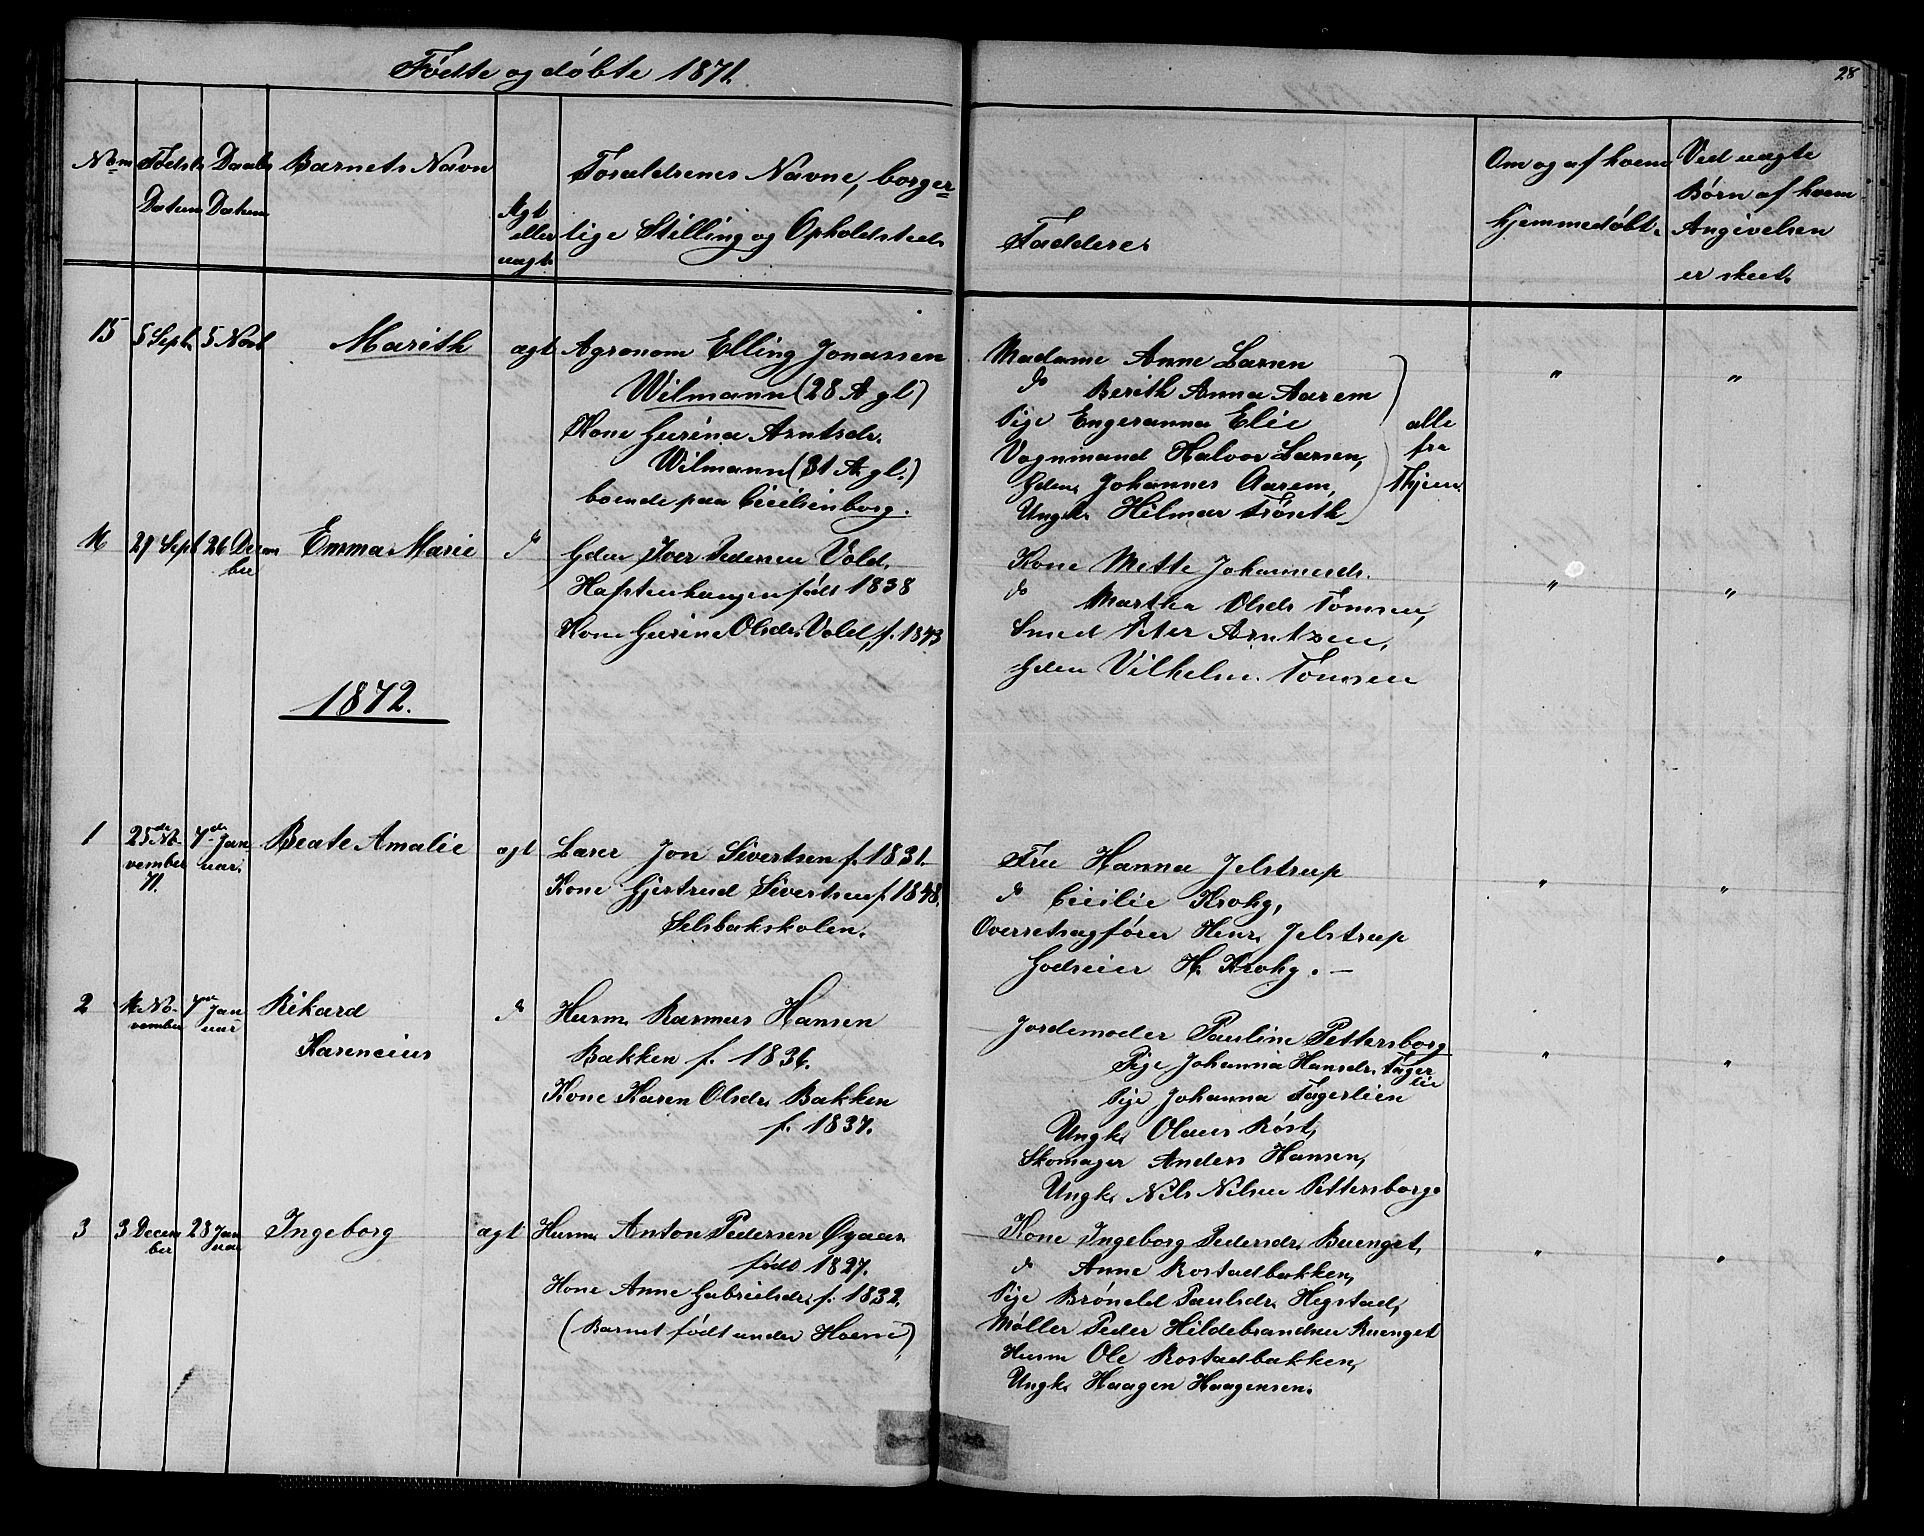 Fødte og døbte 1871.
28
Num Fødsels Datum Daabs Datum Barnets Navn Ægt eller uægt. Forældrenes Navne, borger=
lige Stilling og Opholdsted.
Faddere.
Om og af hvem
hjemmedøbt.
Ved uægte
Børn af hvem
Angivelsen
er skeet.
15 5 Sept. 5 Novb Marith ægt Agronom Elling Jonassen
Wilmann (28 A. gl)
Kone Gurina Arntsdr.
Wilmann (31 A. gl.)
boende paa Ceciliienborg.
Madame Anne Larsen
do Berith Anna Aarem
Pige Engeranna Elie
Vognmand Halvor Larsen,
Gdm. Johannes Aarem,
Ungk. Hilmar Frøseth
alle
fra
" "
16 29 Sept 26 Decem
ber
Emma Marie do Gdm Iver Pedersen Vold,
født 1838
Kone Gurine Olsdr. Vold, f. 1843
Kone Mette Johannesdr.
do Martha Olsdr Tomsen,
Smed Peter Arntzen,
Gdm Vilhelm Tomsen
" "
1872.
1 25de No-
vember
71.
7de Jan
uar.
Beate Amalie ægt Lærer Jon Sivertsen f. 1831.
Kone Gjertrud Sivertsen f. 1848.
Selsbakskolen.
Fru Hanna Jelstrup
do Cicilie Krohg,
Overretsagfører Henr. Jelstrup
Godseier H. Krohg. —
" "
2 14 No-
vember
7de Jan
uar
Rikard
Karencius
do Husm. Rasmus Hansen
Bakken f. 1836.
Kone Karen Olsdr. Bakken
f. 1837.
Jordemoder Pauline Pettersborg
Pige Johanna Hansdr. Fager
lie
Pige Johanna Fagerlien
Ungk. Olaus Røst,
Skomager Anders Hansen,
Ungk. Nils Nilsen Pettersborg.
" "
3 3 Decem
ber
28 Jan
uar
Ingeborg ægt Husm. Anton Pedersen Øyaas
født 1827.
Kone Anne Gabrielsdr. f. 1832.
(Barnet født under Hoem)
Kone Ingeborg Pedersdr. Buenget,
do Anne Rostadbakken,
Pige Brønild Paulsdr. Hegstad,
Møller Peder Hildebrandsen Buenget
Husm Ole Rostadbakken,
Ungk. Haagen Haagensen.
" "